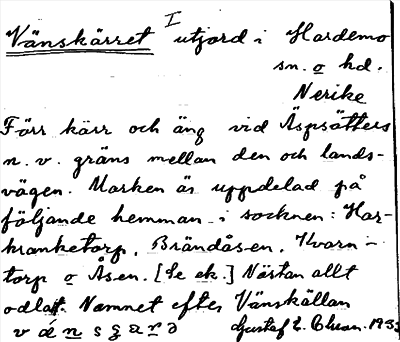 Vänskärret I utjord i Hardemo
sn. o hd.
Nerike
Förr kärr och äng vid Äspsätters
n. v. gräns mellan den och lands-
vägen. Marken är uppdelad på
följande hemman i socknen: Har-
kranketorp, Brändåsen, Kvarn-
torp o Åsen. [Se ek.] Nästan allt
odlat. Namnet efter Vänskällan
Gustaf E. 1933